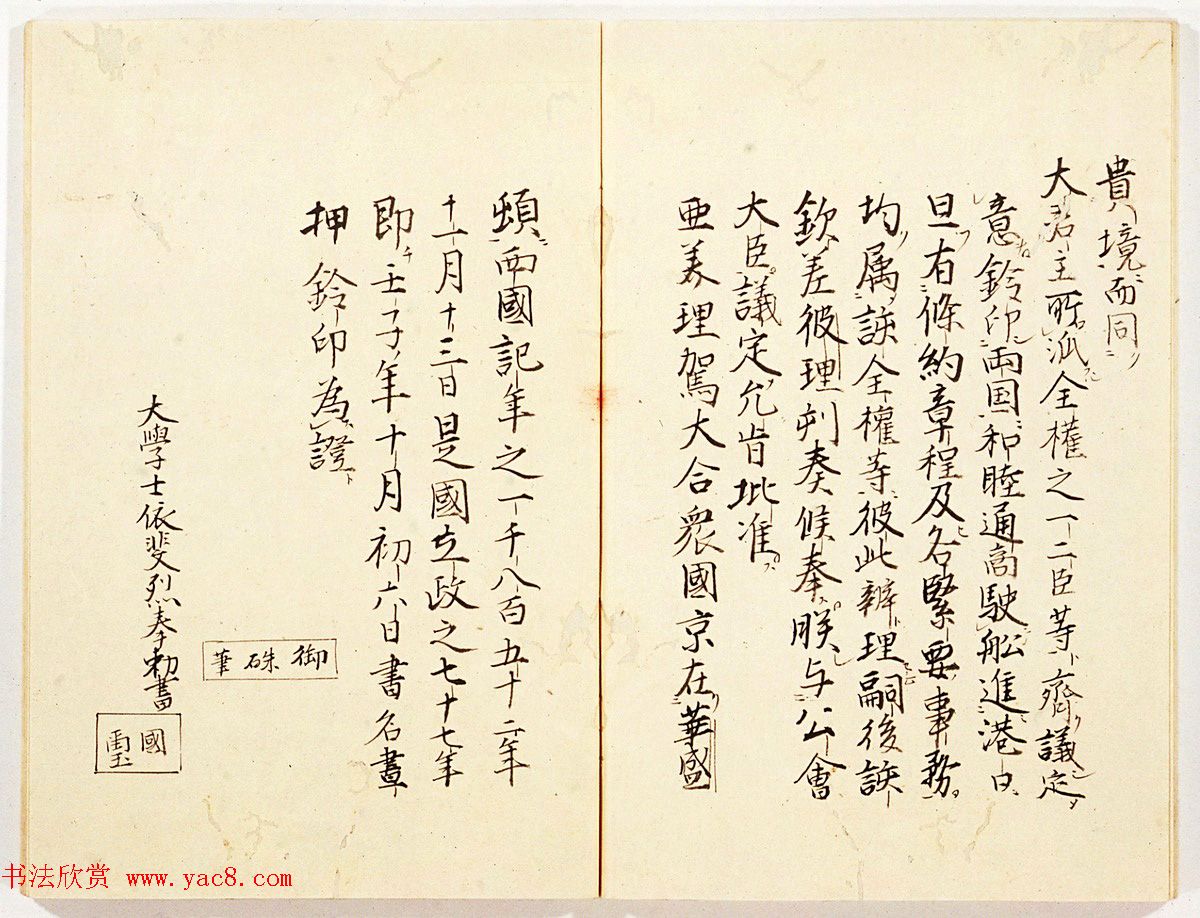 貴境而同
大君主所派全權之一二臣等齊議定
意鈴印兩国和睦通商駛船進港日
且有條約章程及各緊要事務
均属該全權等彼此辦理嗣後該
欽差彼理列奏候奏朕与公會
大臣議定允肯批准
亜美理駕大合衆國京在華盛
頓西國記年之一千八百五十二年
十一月十三日是國立政之七十七年
即壬子年十月初六日書名畫
押鈴印為證
御硃筆
大學士依斐烈奉勅書
國璽
书法欣赏 www.yac8.com